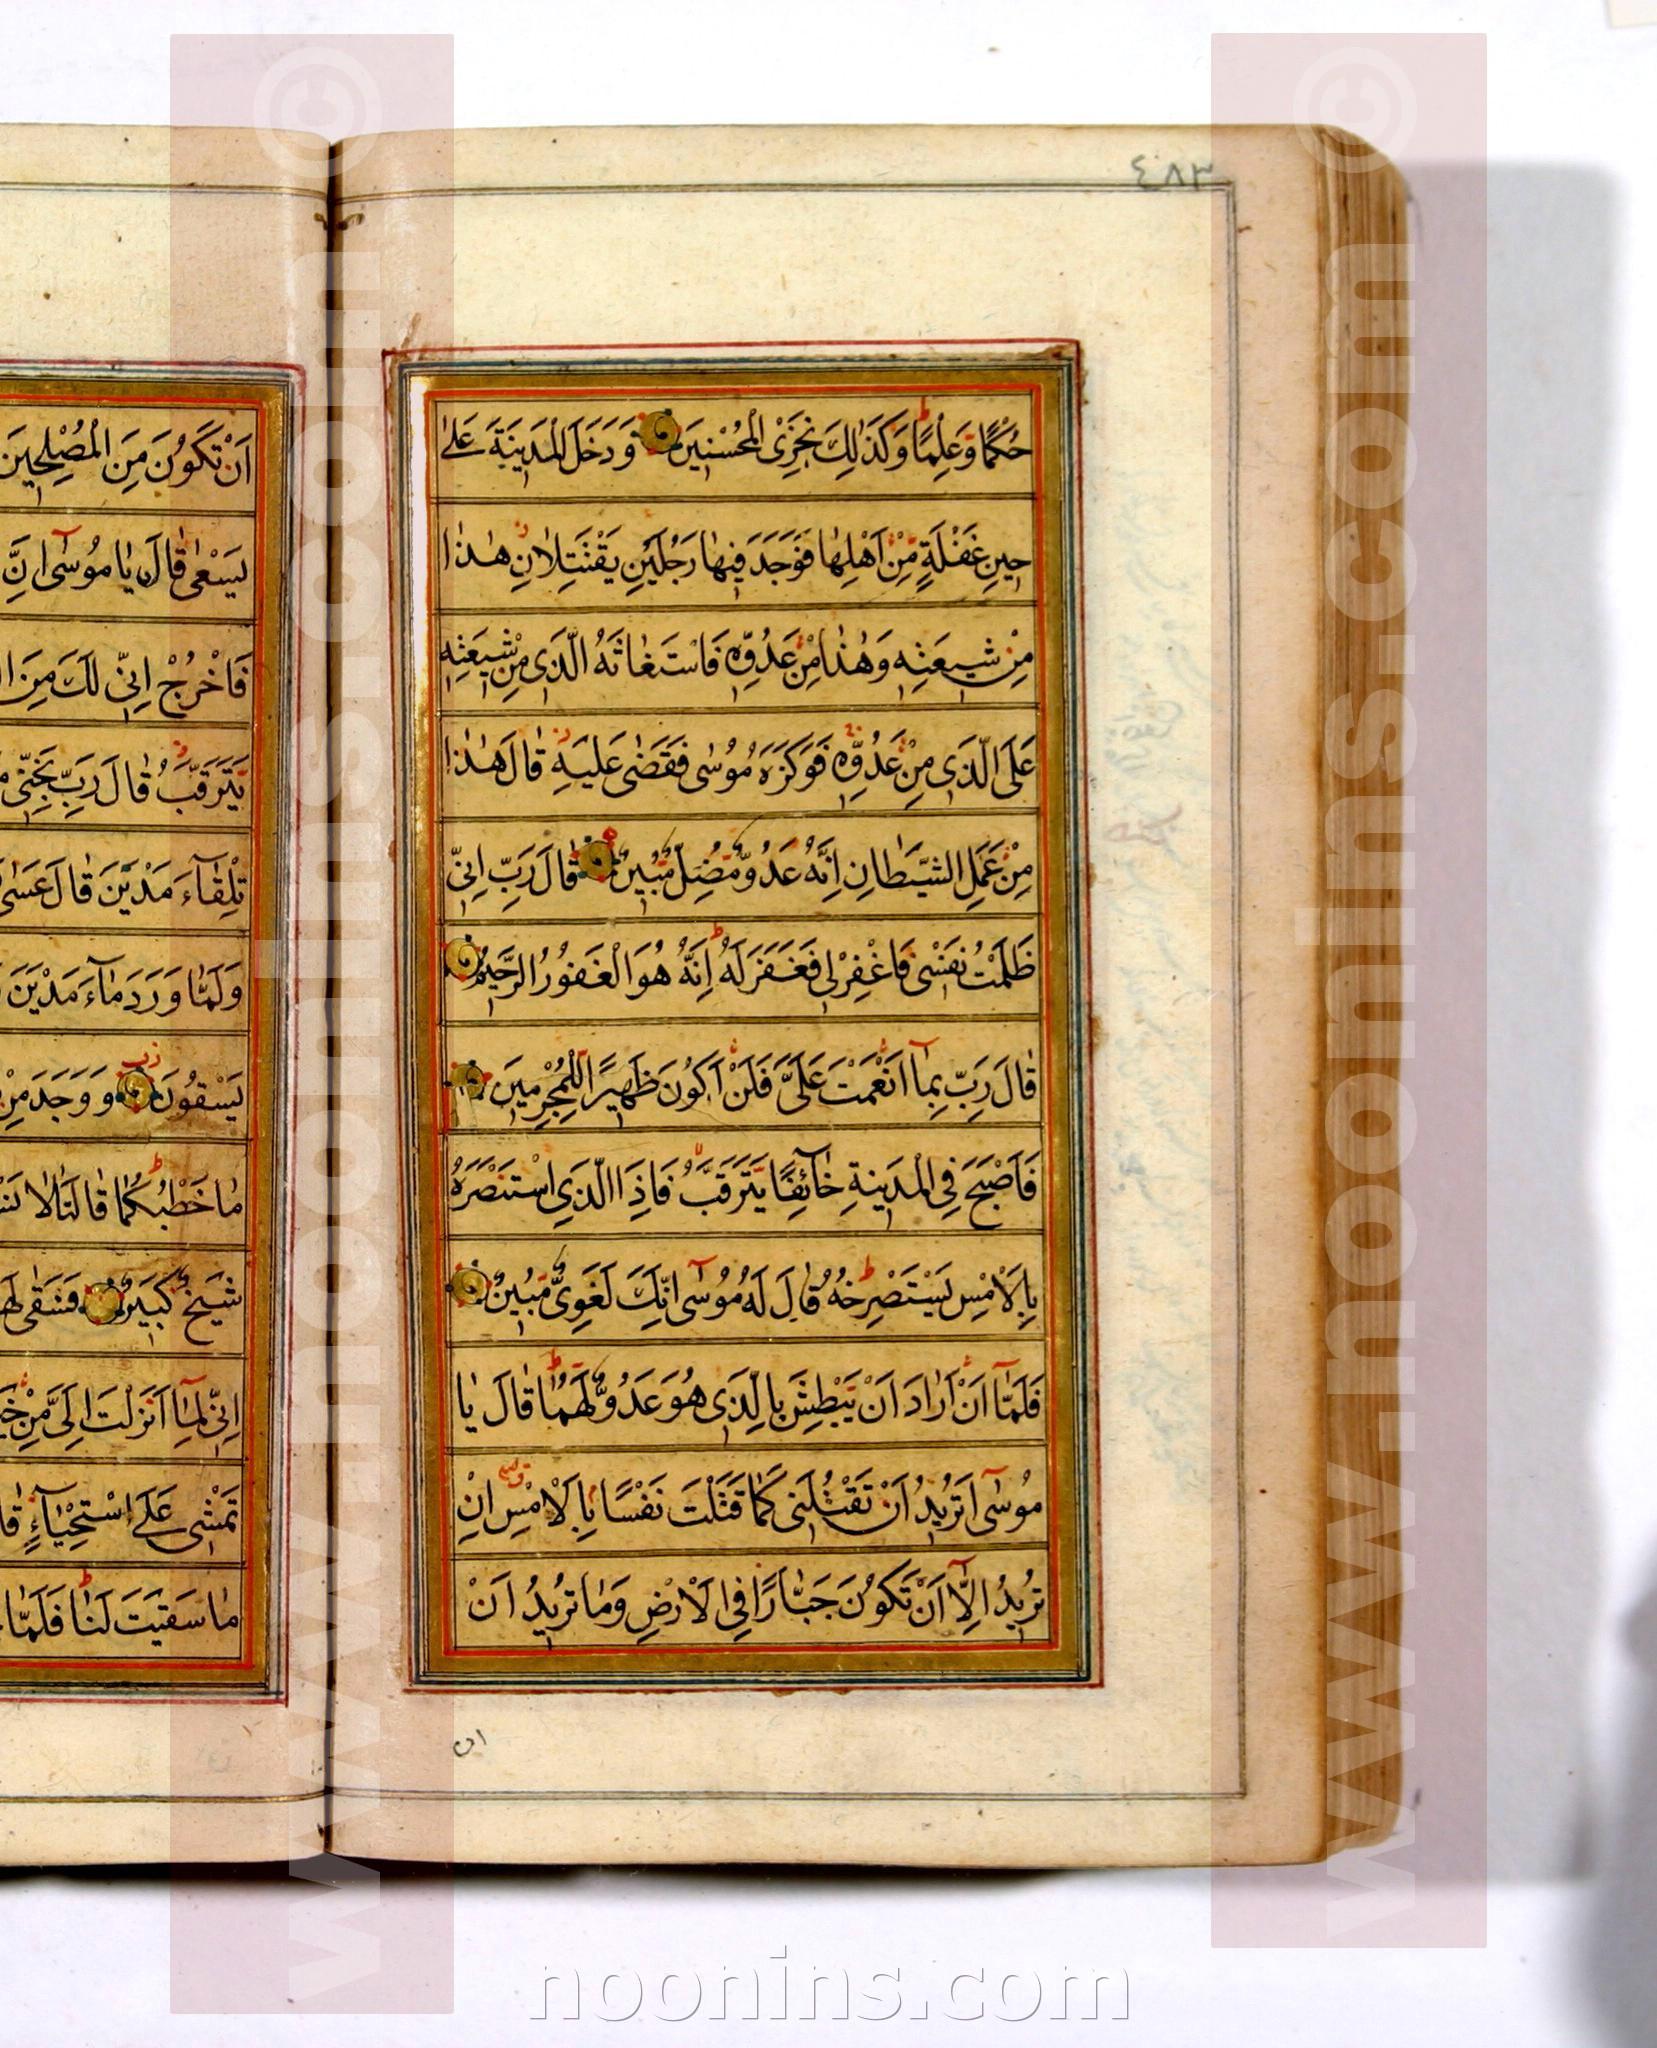 ٤٨٣
حُكْمًا وَعِلْمًا وَكَذٰلِكَ نَجْزِى الْمُحْسِنِينَ وَدَخَلَ الْمَدِينَةَ عَلىٰ
حِينِ غَفْلَةٍ مِّنْ اَهْلِهٰا فَوَجَدَ فِيهٰا رَجُلَيْنِ يَقْتَتِلاٰنِ هٰذٰا
مِنْ شِيعَتِهِ وَهٰذٰا مِنْ عَدُوِّهِ فَاسْتَغٰاثَهُ الَّذِى مِنْ شِيعَتِهِ
عَلَى الَّذِى مِنْ عَدُوِّهِ فَوَكَزَهُ مُوسٰى فَقَضٰى عَلَيْهِ قٰالَ هٰذٰا
مِنْ عَمَلِ الشَّيْطٰانِ اِنَّهُ عَدُوٌّ مُّضِلٌّ مُّبِينٌ قٰالَ رَبِّ اِنِّى
ظَلَمْتُ نَفْسِى فَاغْفِرْلِى فَغَفَرَ لَهُ اِنَّهُ هُوَ الْغَفُورُ الرَّحِيمُ
قٰالَ رَبِّ بِمٰآ اَنْعَمْتَ عَلَىَّ فَلَنْ اَكُونَ ظَهِيرًا لِّلْمُجْرِمِينَ
فَاَصْبَحَ فِى الْمَدِينَةِ خٰآئِفًا يَتَرَقَّبُ فَاِذَا الَّذِى اسْتَنْصَرَهُ
بِالْاَمْسِ يَسْتَصْرِخُهُ قٰالَ لَهُ مُوسٰٓى اِنَّكَ لَغَوِىٌّ مُّبِينٌ
فَلَمّٰآ اَنْ اَرٰادَ اَنْ يَبْطِشَ بِالَّذِى هُوَ عَدُوٌّ لَّهُمٰا قٰالَ يٰا
مُوسٰٓى اَتُرِيدُ اَنْ تَقْتُلَنِى كَمٰا قَتَلْتَ نَفْسًا بِالْاَمْسِ اِنْ
تُرِيدُ اِلّٰآ اَنْ تَكُونَ جَبّٰارًا فِى الْاَرْضِ وَمٰا تُرِيدُ اَنْ
ان
اَنْ تَكُونَ مِنَ الْمُصْلِحِينَ
يَسْعٰى قٰالَ يٰا مُوسٰٓى اِنَّ
فَاخْرُجْ اِنِّى لَكَ مِنَ
يَتَرَقَّبُ قٰالَ رَبِّ نَجِّنِى
تِلْقٰآءَ مَدْيَنَ قٰالَ عَسٰى
وَلَمّٰا وَرَدَ مٰآءَ مَدْيَنَ
يَسْقُونَ وَوَجَدَ مِنْ
مٰا خَطْبُكُمٰا قٰالَتٰا لاٰ
شَيْخٌ كَبِيرٌ فَسَقٰى
اِنِّى لِمٰآ اَنْزَلْتَ اِلَىَّ مِنْ
تَمْشِى عَلَى اسْتِحْيٰآءٍ
مٰا سَقَيْتَ لَنٰا فَلَمّٰا
www.noonins.com ©
www.noonins.com ©
noonins.com